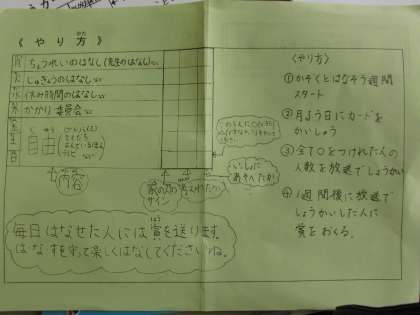 《やり方》
かた
月 ちょうれいのはなし(先生のはなし)など
火 じゅぎょうのはなし など
水 休み時間のはなし など
木 かかり 委員会 など
金
土
日
自由
じ ゆう
ともだち
テレビ など
内容
家の人の
サイン
毎日はなせた人には賞を送ります。
しょう
はなすを守って楽しくはなしてくださいね。
《やり方》
①かぞくとはなそう週間
スタート
②月よう日にカードを
かいしゅう
③全て○をつけれた人の
人数を放送でしょうかい
④1週間後に放送で
しょうかいした人に
賞をおくる。